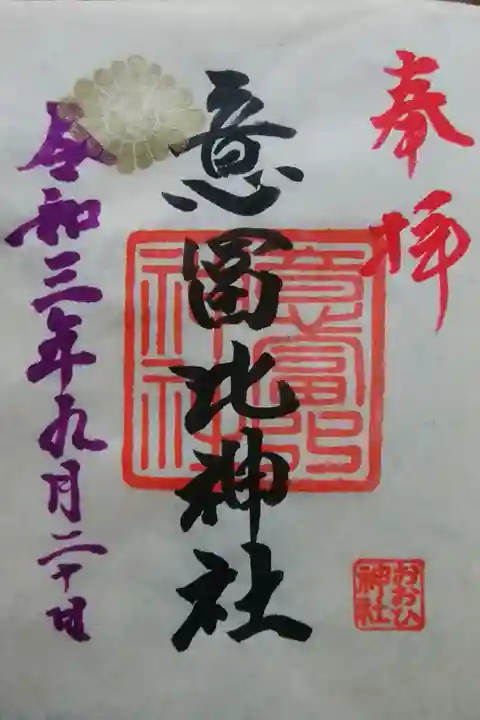 奉拝
意冨比神社
意富比神社
おおひ神社
令和三年九月二十日